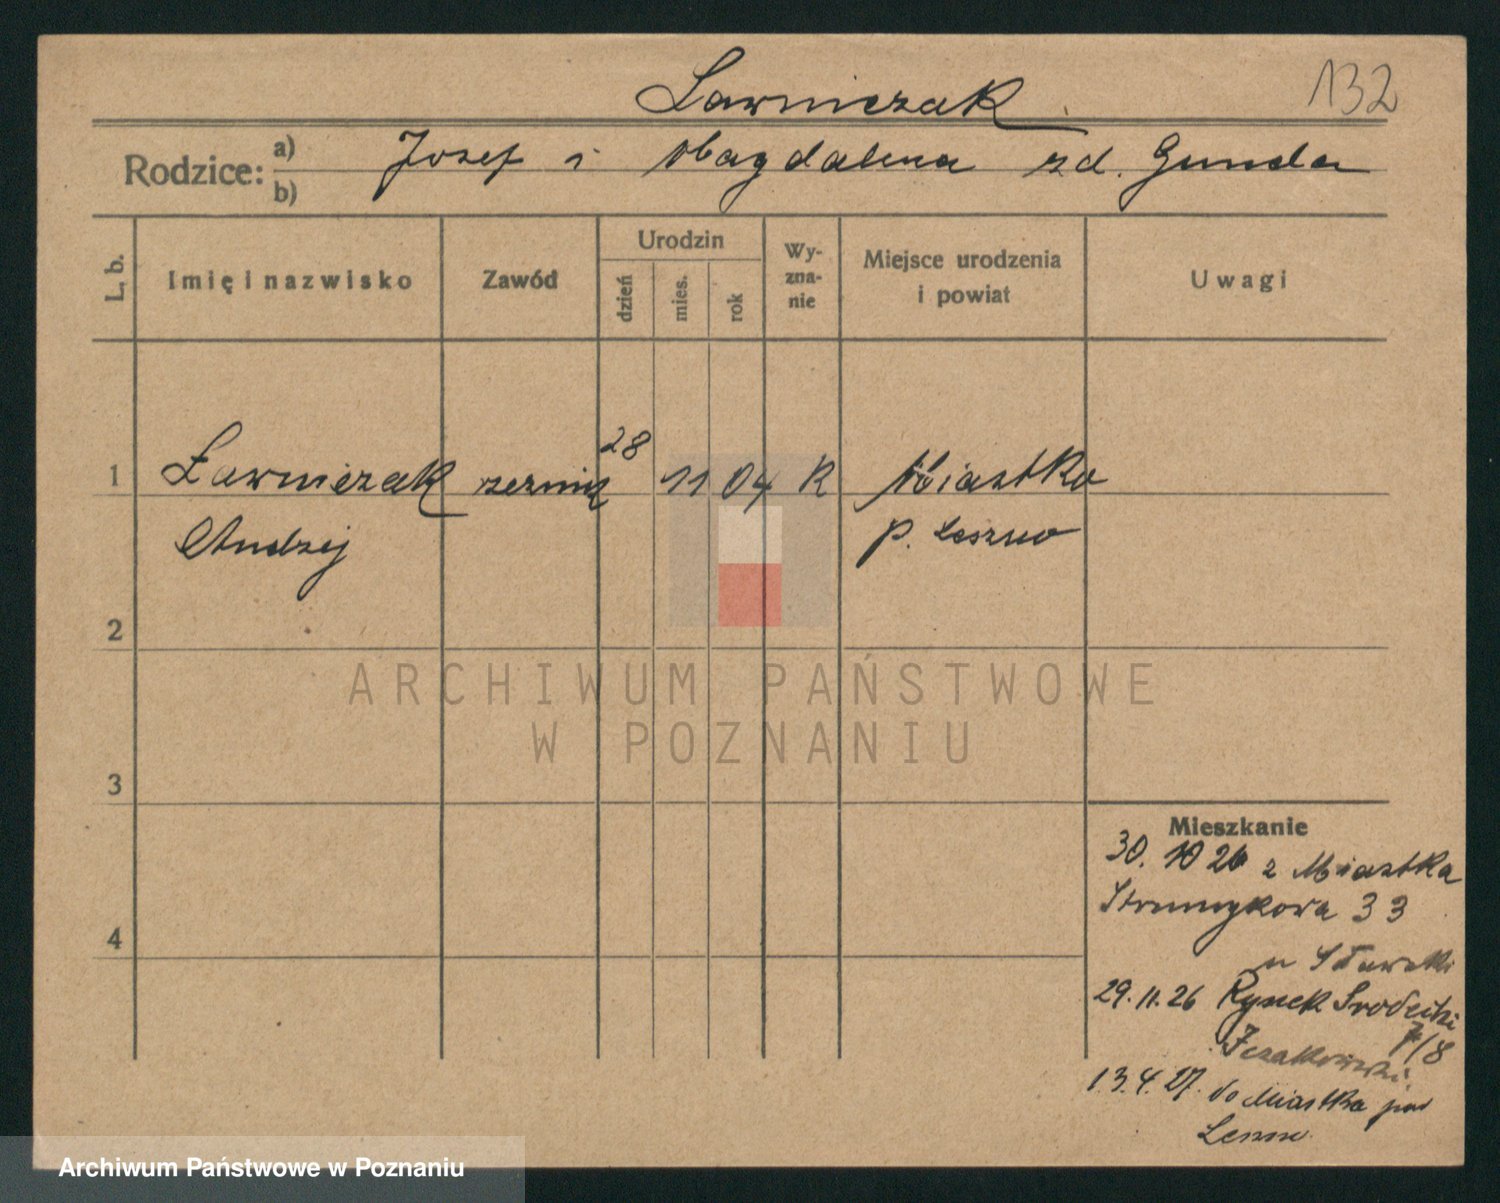 132
Ławniczak
Rodzice: a) b) Josef i Magdalena zd. Gunda
L. b.
Imię i nazwisko
Zawód
Urodzin
dzień
mies.
rok
Wy-
zna-
nie
Miejsce urodzenia
i powiat
Uwagi
1 Ławniczak 28 11 04 R Miastko
Andzej p. Leszno
2
3
4
Mieszkanie
30. 10 26 z Miastka
Strumykowa 33
u Sławski
29. 11. 26 Rynek Srodecki
7/8
13. 4. 27. do Miastka pow
Leszno
ARCHIWUM PAŃSTWOWE
W POZNANIU
Archiwum Państwowe w Poznaniu